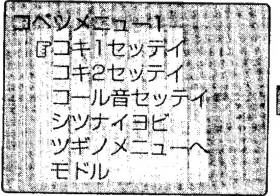 コベツメニュー1
☞コキ1セッテイ
コキ2セッテイ
コール音セッテイ
シツナイヨビ
ツギノメニューヘ
モドル